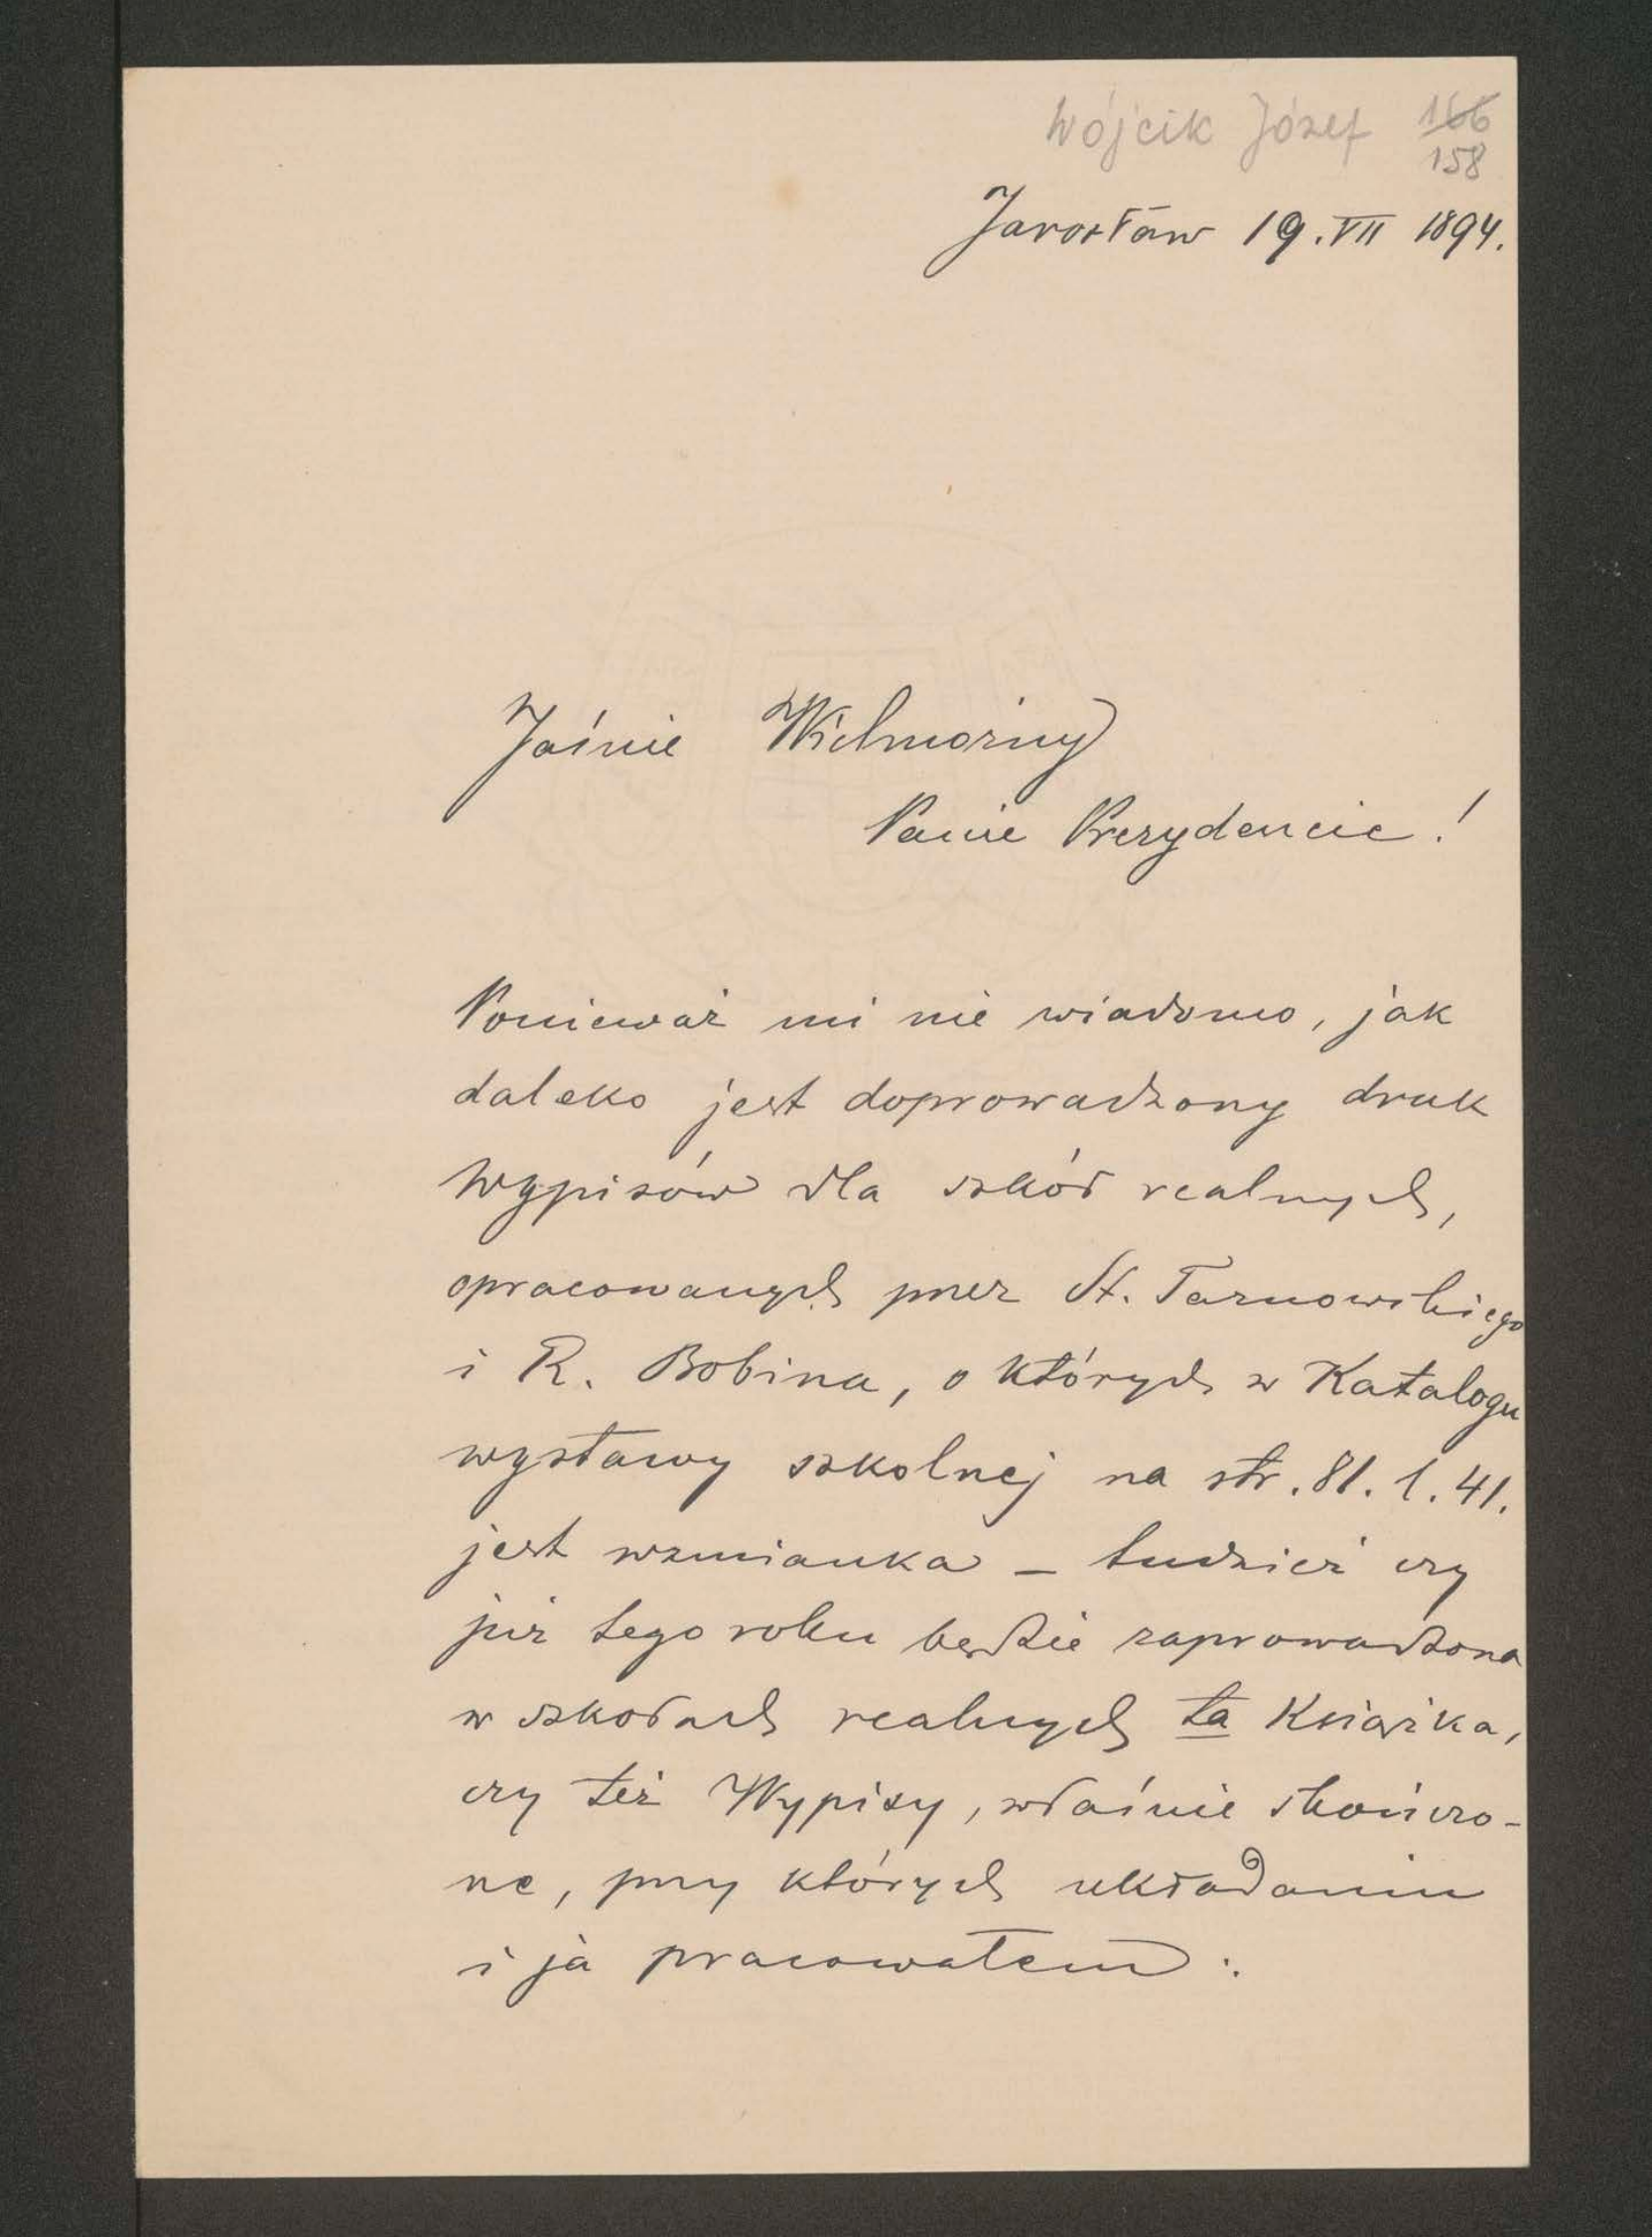 Wójcik Józef 166
158
Jarosław 19.VII 1894.
Jaśnie Wielmożny
Panie Prezydencie!
Ponieważ mi nie wiadomo, jak
daleko jest doprowadzony druk
Wypisów dla szkół realnych,
opracowanych przez St. Tarnowskiego
i R. Bobina, o których w Katalogu
wystawy szkolnej na str. 81. l. 41.
jest wzmianka – tudzież czy
już tego roku będzie zaprowadzona
w szkołach realnych ta Książka,
czy też Wypisy, właśnie skończo-
ne, przy których układaniu
i ja pracowałem: